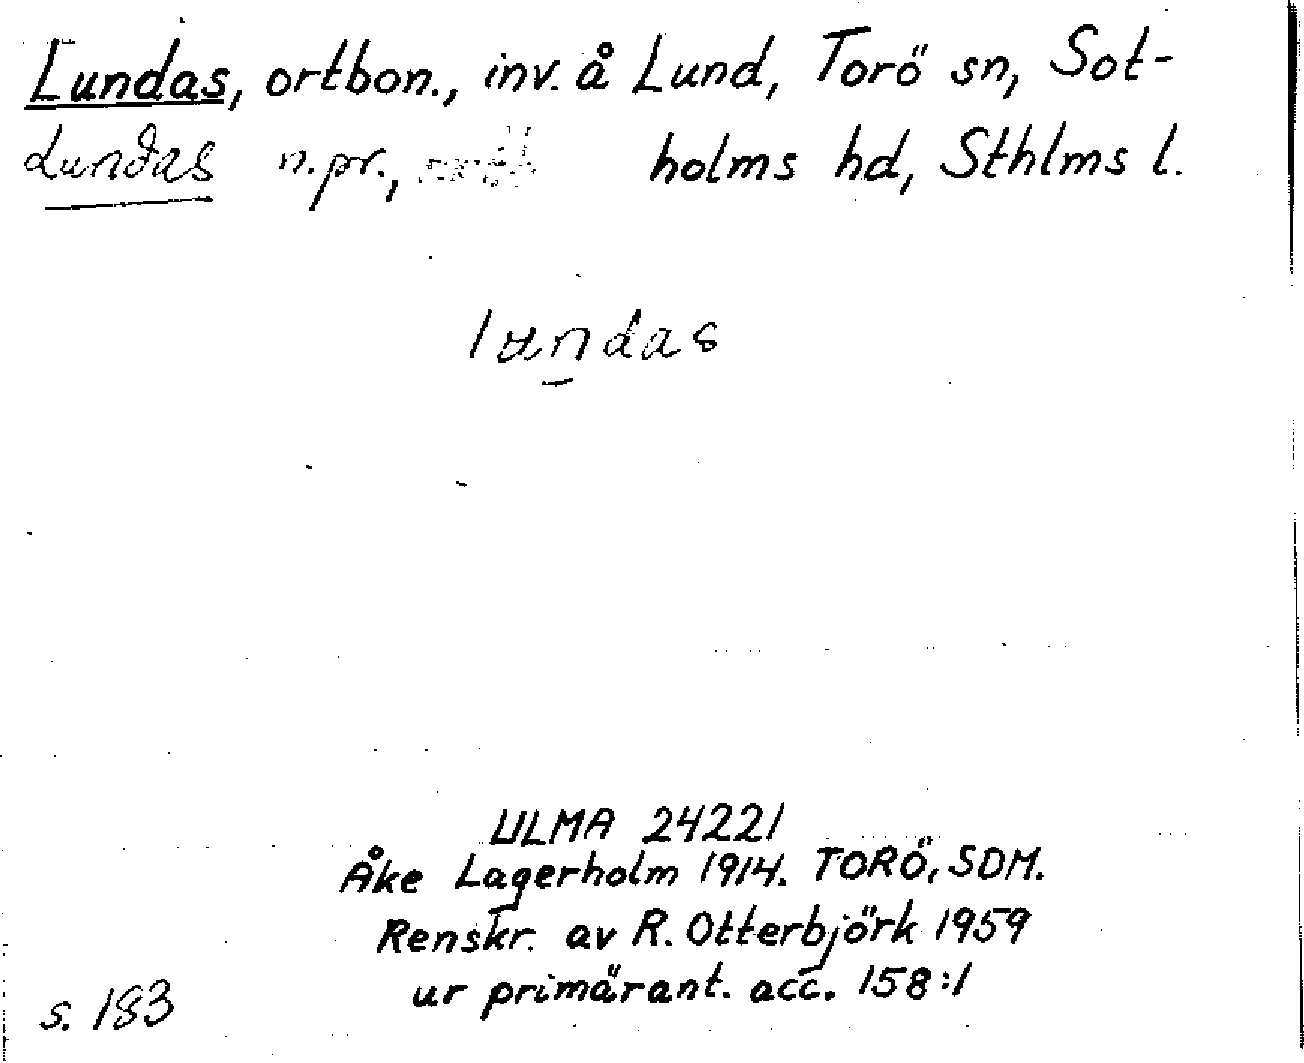 Lundas, ortbon., inv. å Lund, Torö sn, Sot-
Lundas n.pr., holms hd, Sthlms l.
lundas
ULMA 24221
Åke Lagerholm 1914. TORÖ, SDM.
Renskr. av R. Otterbjörk 1959
ur primärant. acc. 158:1
s. 183